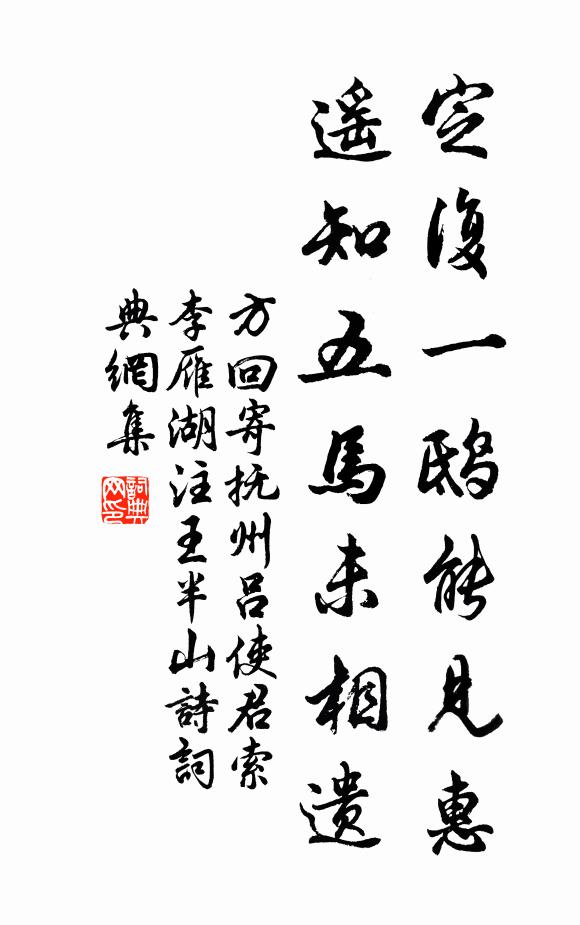 定復一鴟能見惠
遥知五馬未相遺
方回寄抚州吕使君索
李雁湖注王半山詩詞
典網集
詞典网印